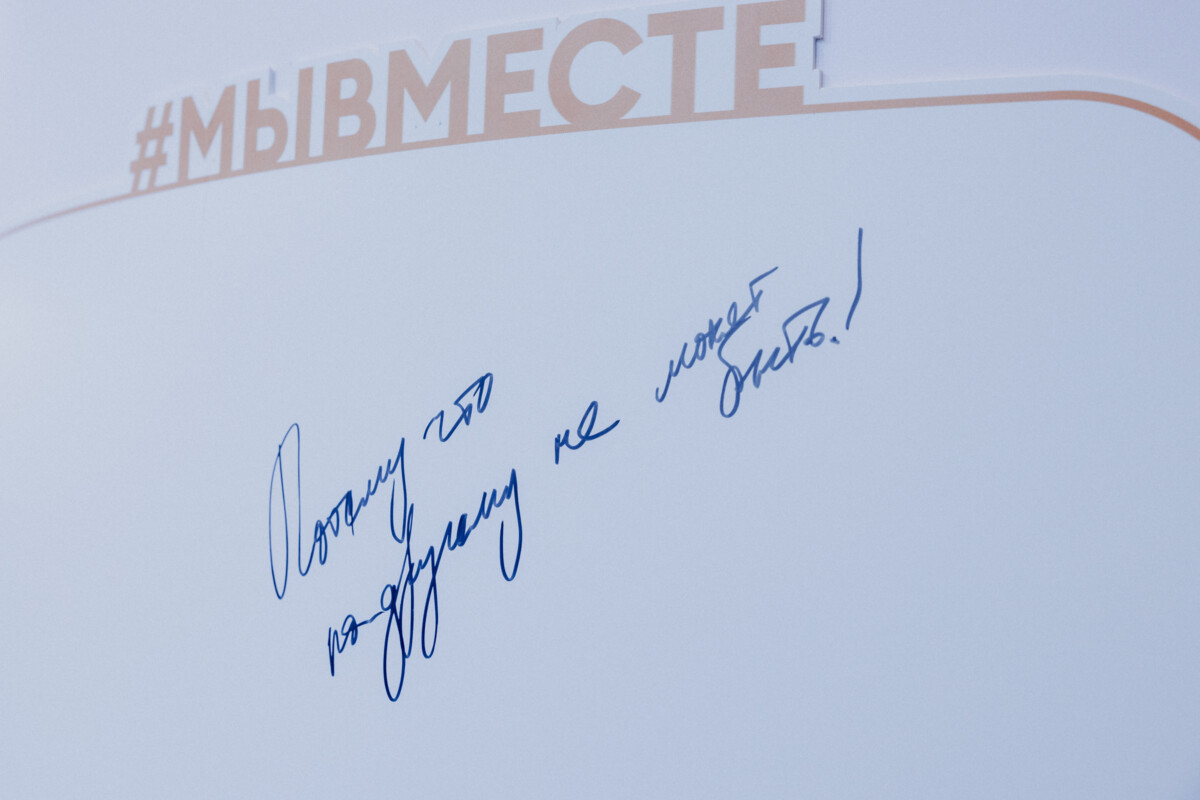 #МЫВМЕСТЕ
Потому что
по-другому не может
быть!